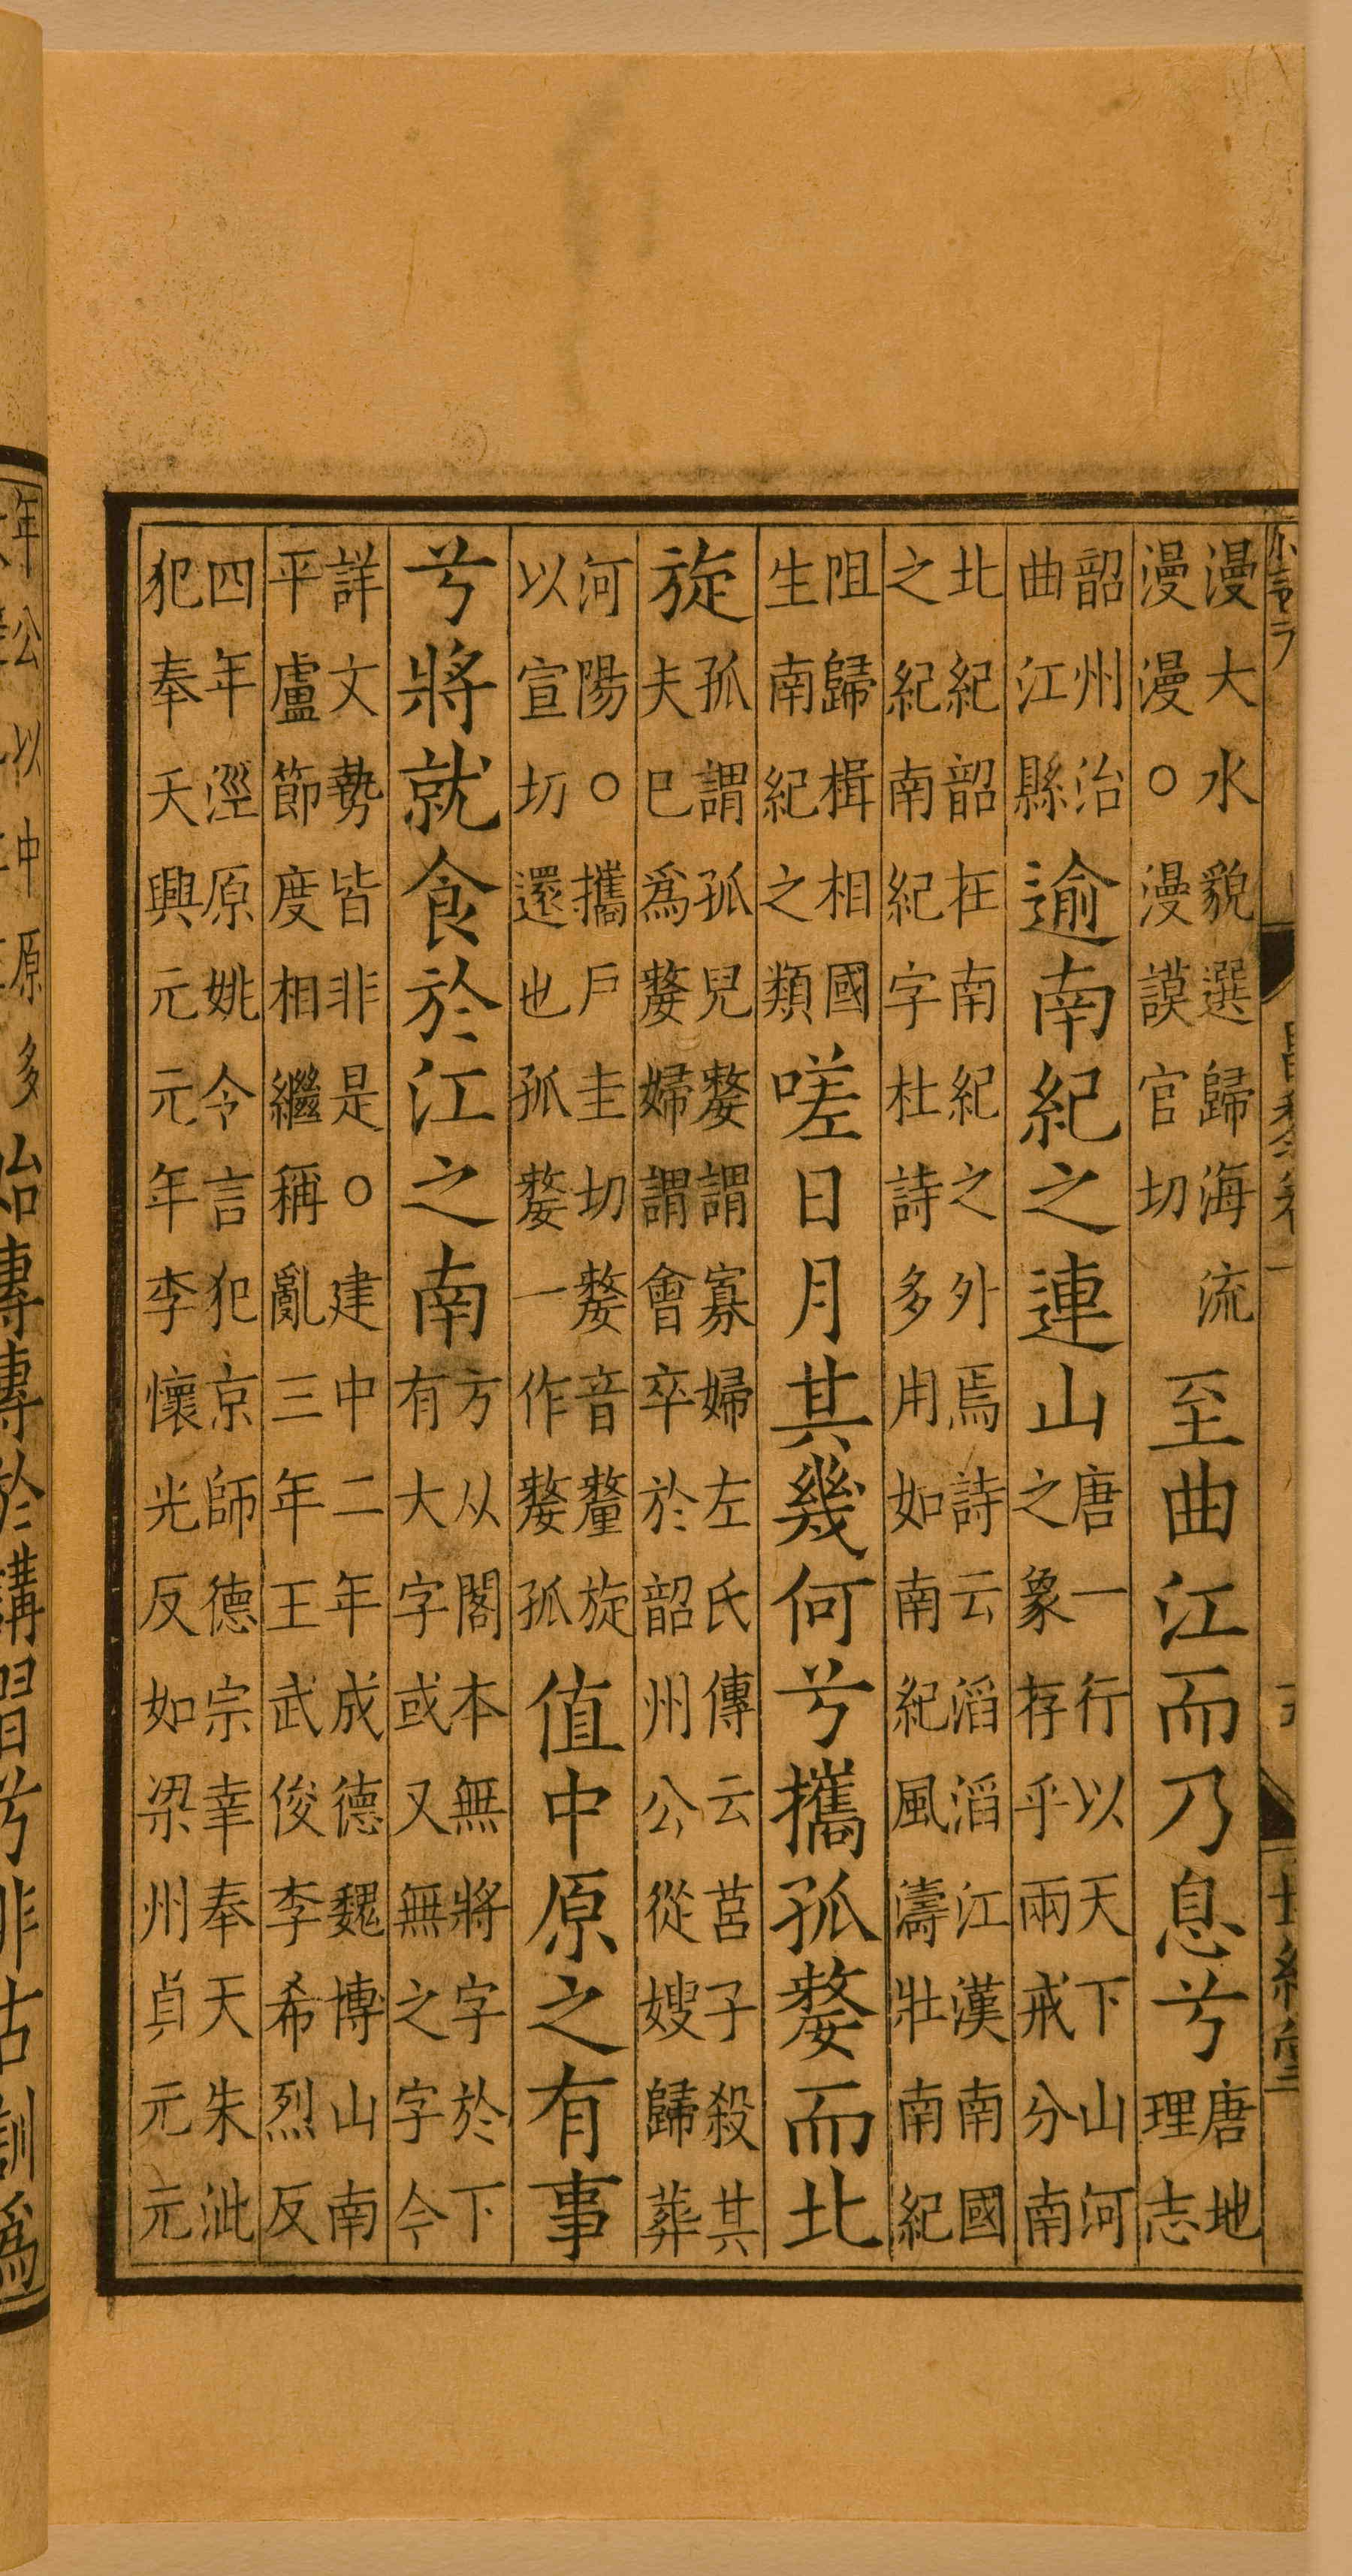 漫大水貌選歸海流
漫漫○漫謨官切
至曲江而乃息兮
唐地
理志
韶州治
曲江縣
逾南紀之連山
唐一行以天下山河
之象存乎兩戒分南
北紀紀韶在南紀之外焉詩云滔滔江漢南國
之紀南紀字杜詩多用如南紀風濤壯南紀
阻歸楫相國
生南紀之類
嗟日月其幾何兮攜孤嫠而北
旋
孤謂孤兒嫠謂寡婦左氏傳云莒子殺其
夫巳爲嫠婦謂會卒於韶州公從嫂歸葬
河陽○攜戶圭切嫠音釐旋
以宣切還也孤嫠一作嫠孤
值中原之有事
兮將就食於江之南
方从閣本無將字於下
有大字或又無之字今
詳文勢皆非是○建中二年成德魏博山南
平盧節度相繼稱亂三年王武俊李希烈反
四年涇原姚令言犯京師德宗幸奉天朱泚
犯奉天興元元年李懷光反如梁州貞元元
年公以中原多
始專專於講習兮非古訓爲